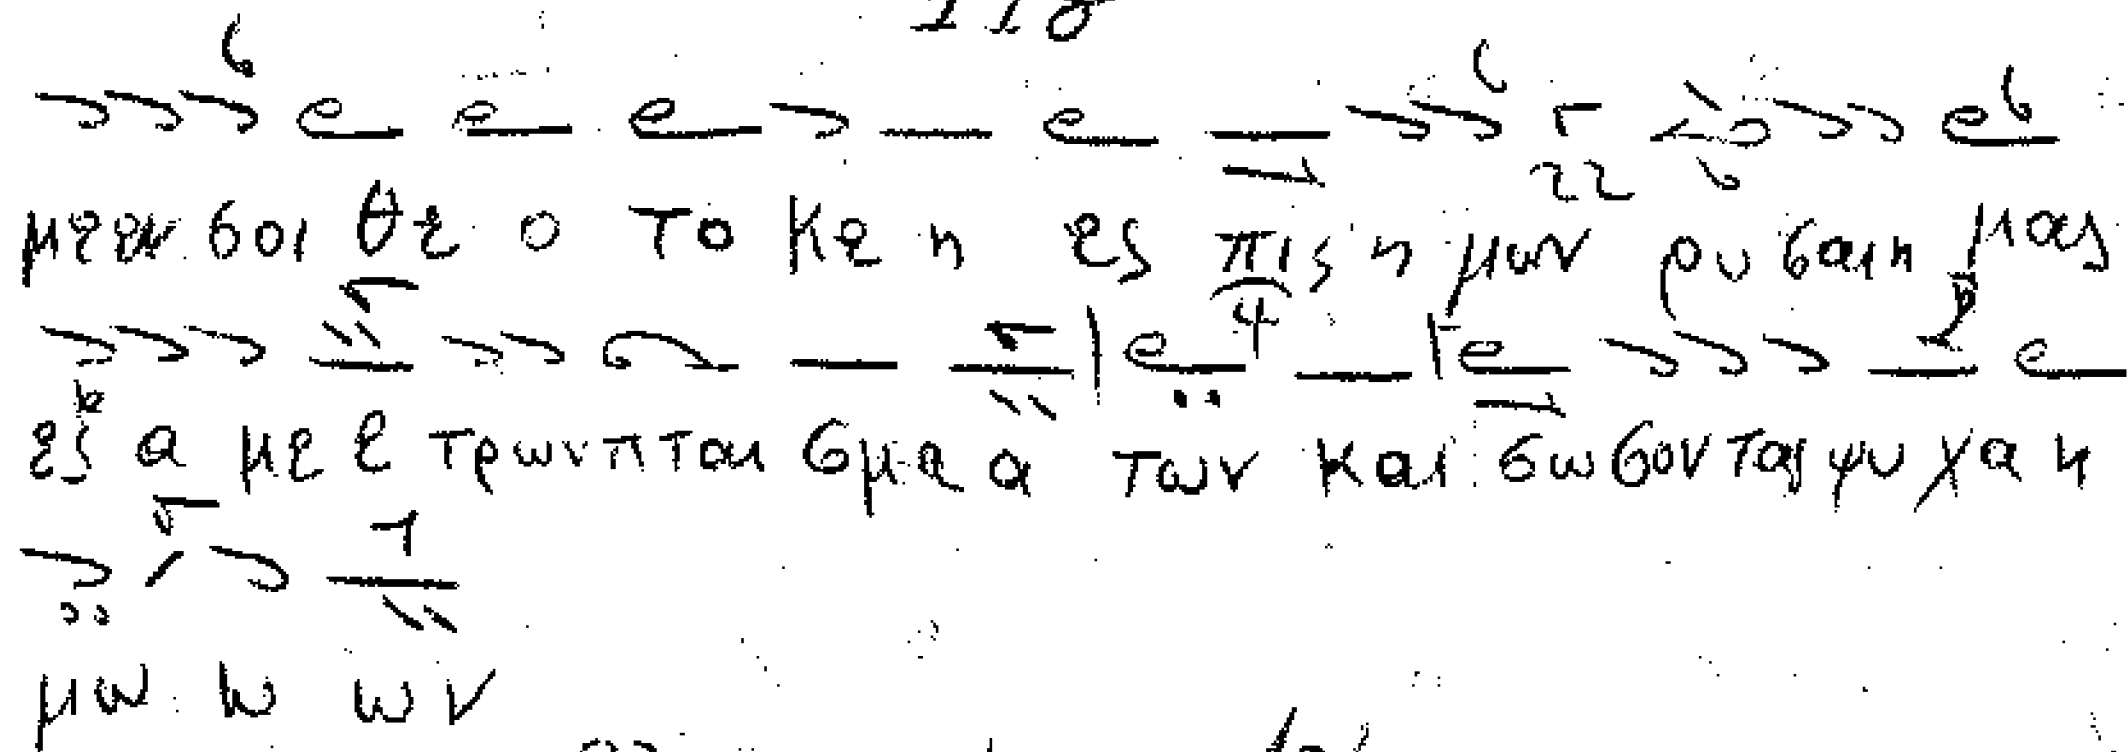 μεεν σοι θε ο το κε η ες πις η μων ρυ σαι η μας
ες α με ε τρων πται σμα α των και σω σον τας ψυ χα η
μω ω ων